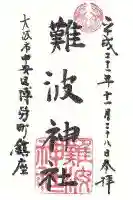 平成二十三年十一月二十八日参拝
難波神社
大阪市中央区博労町鎮座